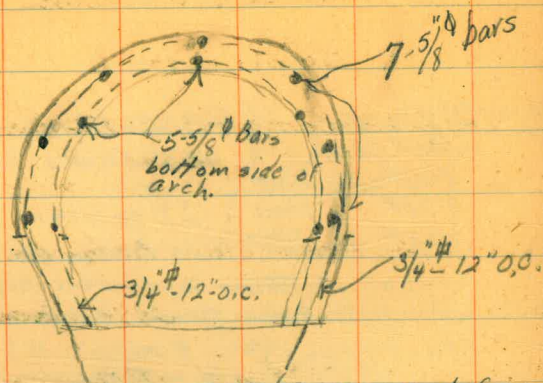 7-5/8"ϕ bars
5-5/8"ϕ Bars
bottom side of
arch.
3/4"ϕ-12"O.C.
3/4"ϕ-12"O.C.